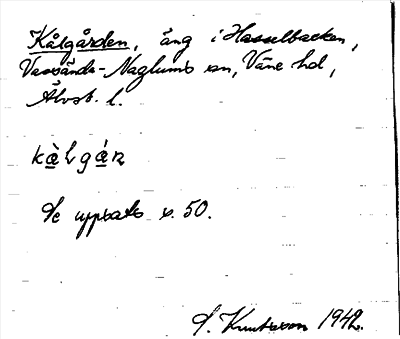 Kålgården, äng i Hasselbacken,
Vassända-Naglums sn, Väne hd,
Älvsb. l.
kàlgáɳ
Se uppsats s. 50.
S. Knutsson 1942.